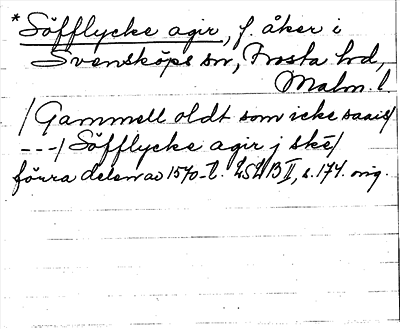 * Söfflycke agir, f. åker i
Svensköps sn, Frosta hd,
Malm. l
/ Gammell oldt som icke saais/
---/ Söfflycke agir j ské/
förra delen av 1570-t. LSLB II, s. 174. orig.